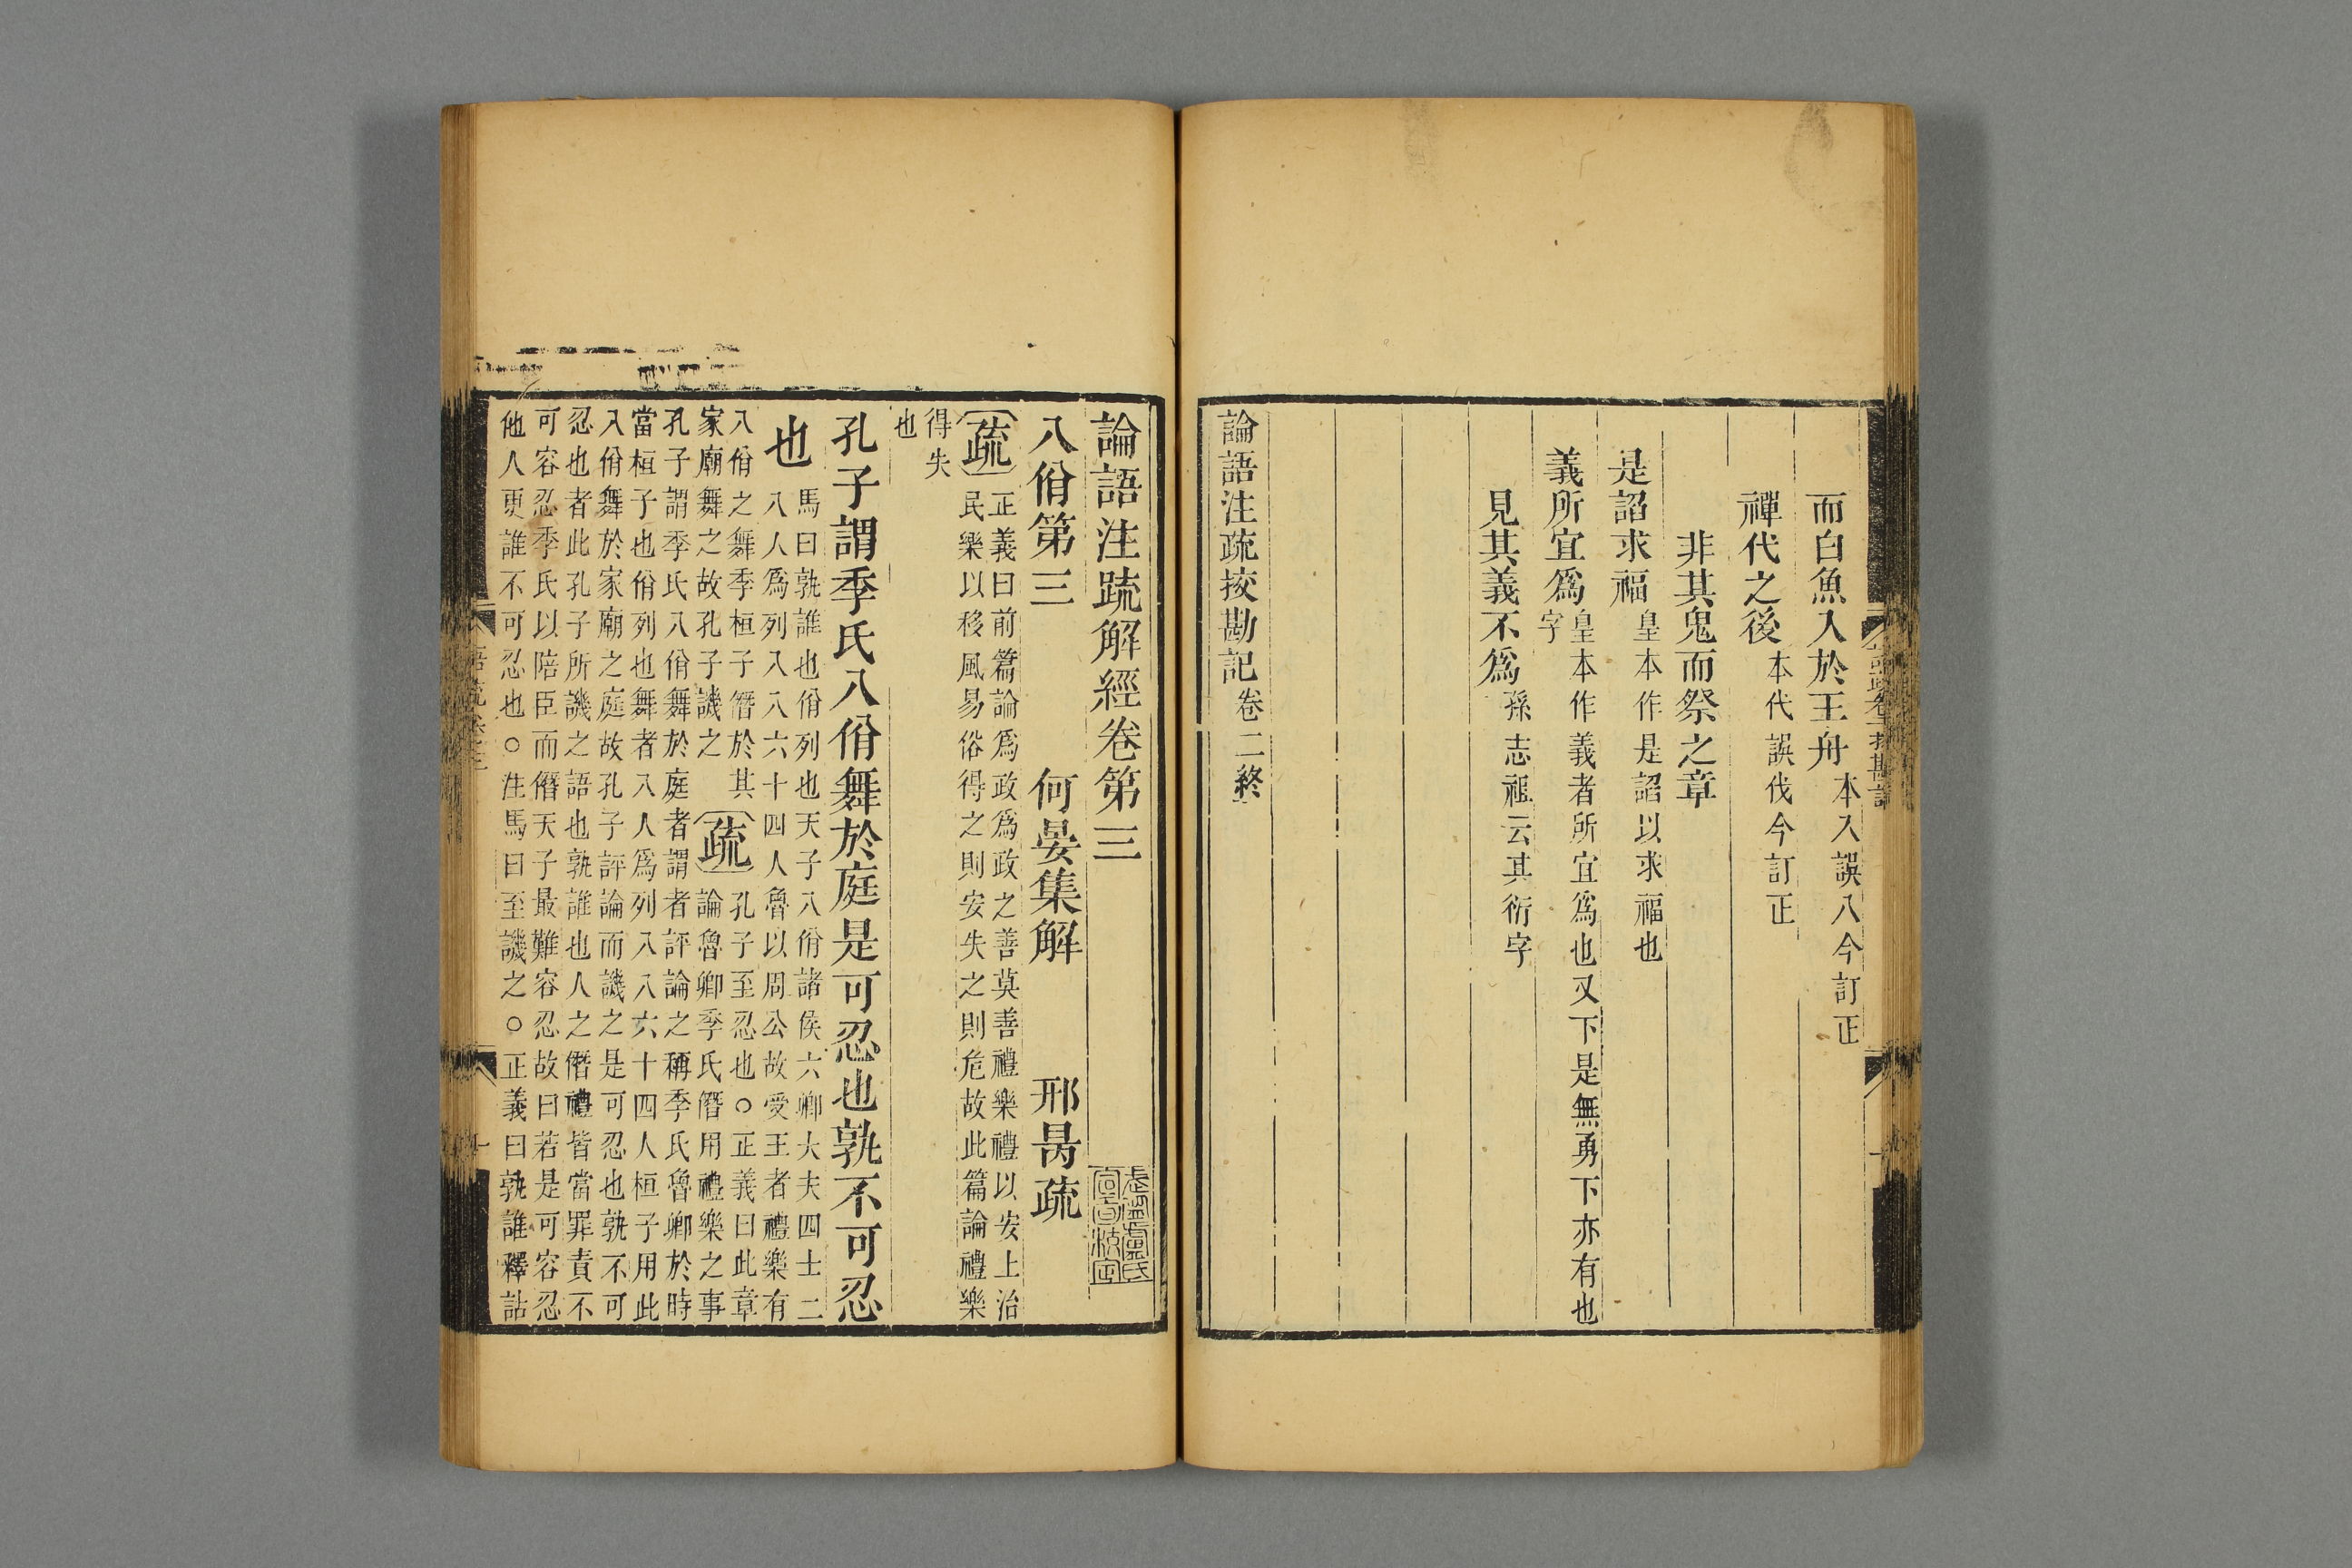 而白魚入於王舟本入誤八今訂正
禪代之後本代誤伐今訂正
非其鬼而祭之章
是諂求福皇本作是諂以求福也
義所宜爲皇本作義者所宜爲也又下是無勇下亦有也
字
見其義不爲孫志祖云其衍字
論語注疏挍勘記卷二終
論語注疏解經卷第三
八佾第三 何晏集解 邢昺疏
疏正義曰前篇論爲政爲政之善莫善禮樂禮以安上治
民樂以移風易俗得之則安失之則危故此篇論禮樂
得失
也
孔子謂季氏八佾舞於庭是可忍也孰不可忍
也馬曰孰誰也佾列也天子八佾諸侯六卿大夫四士二
八人爲列八八六十四人魯以周公故受王者禮樂有
八佾之舞季桓子僭於其
家廟舞之故孔子譏之
疏孔子至忍也○正義曰此章
論魯卿季氏僭用禮樂之事
孔子謂季氏八佾舞於庭者謂者評論之稱季氏魯卿於時
當桓子也佾列也舞者八人爲列八八六十四人桓子用此
八佾舞於家廟之庭故孔子評論而譏之是可忍也孰不可
忍也者此孔子所譏之語也孰誰也人之僭禮皆當罪責不
可容忍季氏以陪臣而僭天子最難容忍故曰若是可容忍
他人更誰不可忍也○注馬曰至譏之○正義曰孰誰釋詁